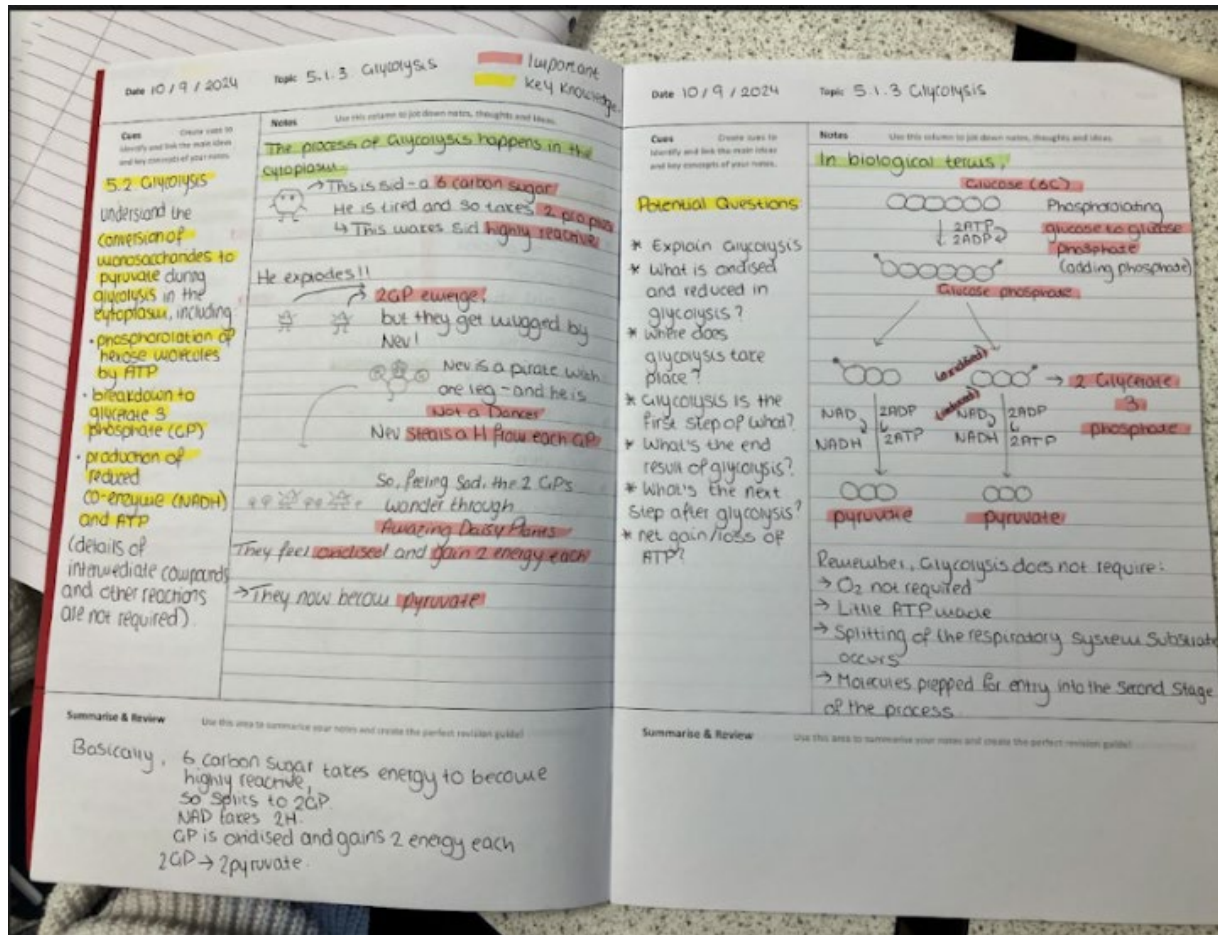 Date 10/9/2024 Topic 5.1.3 Glycolysis
Important
Key Knowledge
Cues
Create cues to
identify and link the main ideas
and key concepts of your notes.
5.2 Glycolysis
understand the
conversion of
monosaccharides to
pyruvate during
glycolysis in the
cytoplasm, including
• phosphorolation of
hexose molecules
by ATP
• breakdown to
glycerate 3
phosphate (GP)
• production of
reduced
co-enzyme (NADH)
and ATP
(details of
intermediate compounds
and other reactions
are not required).
Notes
Use this column to jot down notes, thoughts and ideas.
The process of Glycolysis happens in the
cytoplasm.
→ This is sid - a 6 carbon sugar
He is tired and so takes 2 pro plus
↳ This makes Sid highly reactive
He explodes!!
2GP emerge!
but they get mugged by
Nev!
Nev is a pirate with
one leg - and he is
Not a Dancer
Nev steals a H from each GP
So, feeling Sad, the 2 GPs
wander through
Amazing Daisy Plants
They feel oxidised and gain 2 energy each
→ They now becom pyruvate
Summarise & Review
Use this area to summarise your notes and create the perfect revision guide!
Basically, 6 carbon sugar takes energy to become
highly reactive,
so splits to 2GP.
NAD takes 2H.
GP is oxidised and gains 2 energy each
2GP → 2pyruvate.
Date 10/9/2024 Topic 5.1.3 Glycolysis
Cues
Create cues to
identify and link the main ideas
and key concepts of your notes.
Potential Questions
* Explain Glycolysis
* What is oxidised
and reduced in
glycolysis?
* Where does
glycolysis take
place?
* Glycolysis is the
first step of what?
* What's the end
result of glycolysis?
* What's the next
step after glycolysis?
* net gain/loss of
ATP?
Notes
Use this column to jot down notes, thoughts and ideas.
In biological terms,
Glucose (6C)
2ATP
2ADP
Phosphorolating
glucose to glucose
phosphate
(adding phosphate)
Glucose phosphate
(oxidised)
→ 2 Glycerate
3
phosphate
(reduced)
NAD 2ADP NAD 2ADP
NADH 2ATP NADH 2ATP
pyruvate pyruvate
Remember, Glycolysis does not require:
→ O2 not required
→ Little ATP made
→ Splitting of the respiratory system substrate
occurs
→ Molecules prepped for entry into the Second Stage
of the process.
Summarise & Review
Use this area to summarise your notes and create the perfect revision guide!